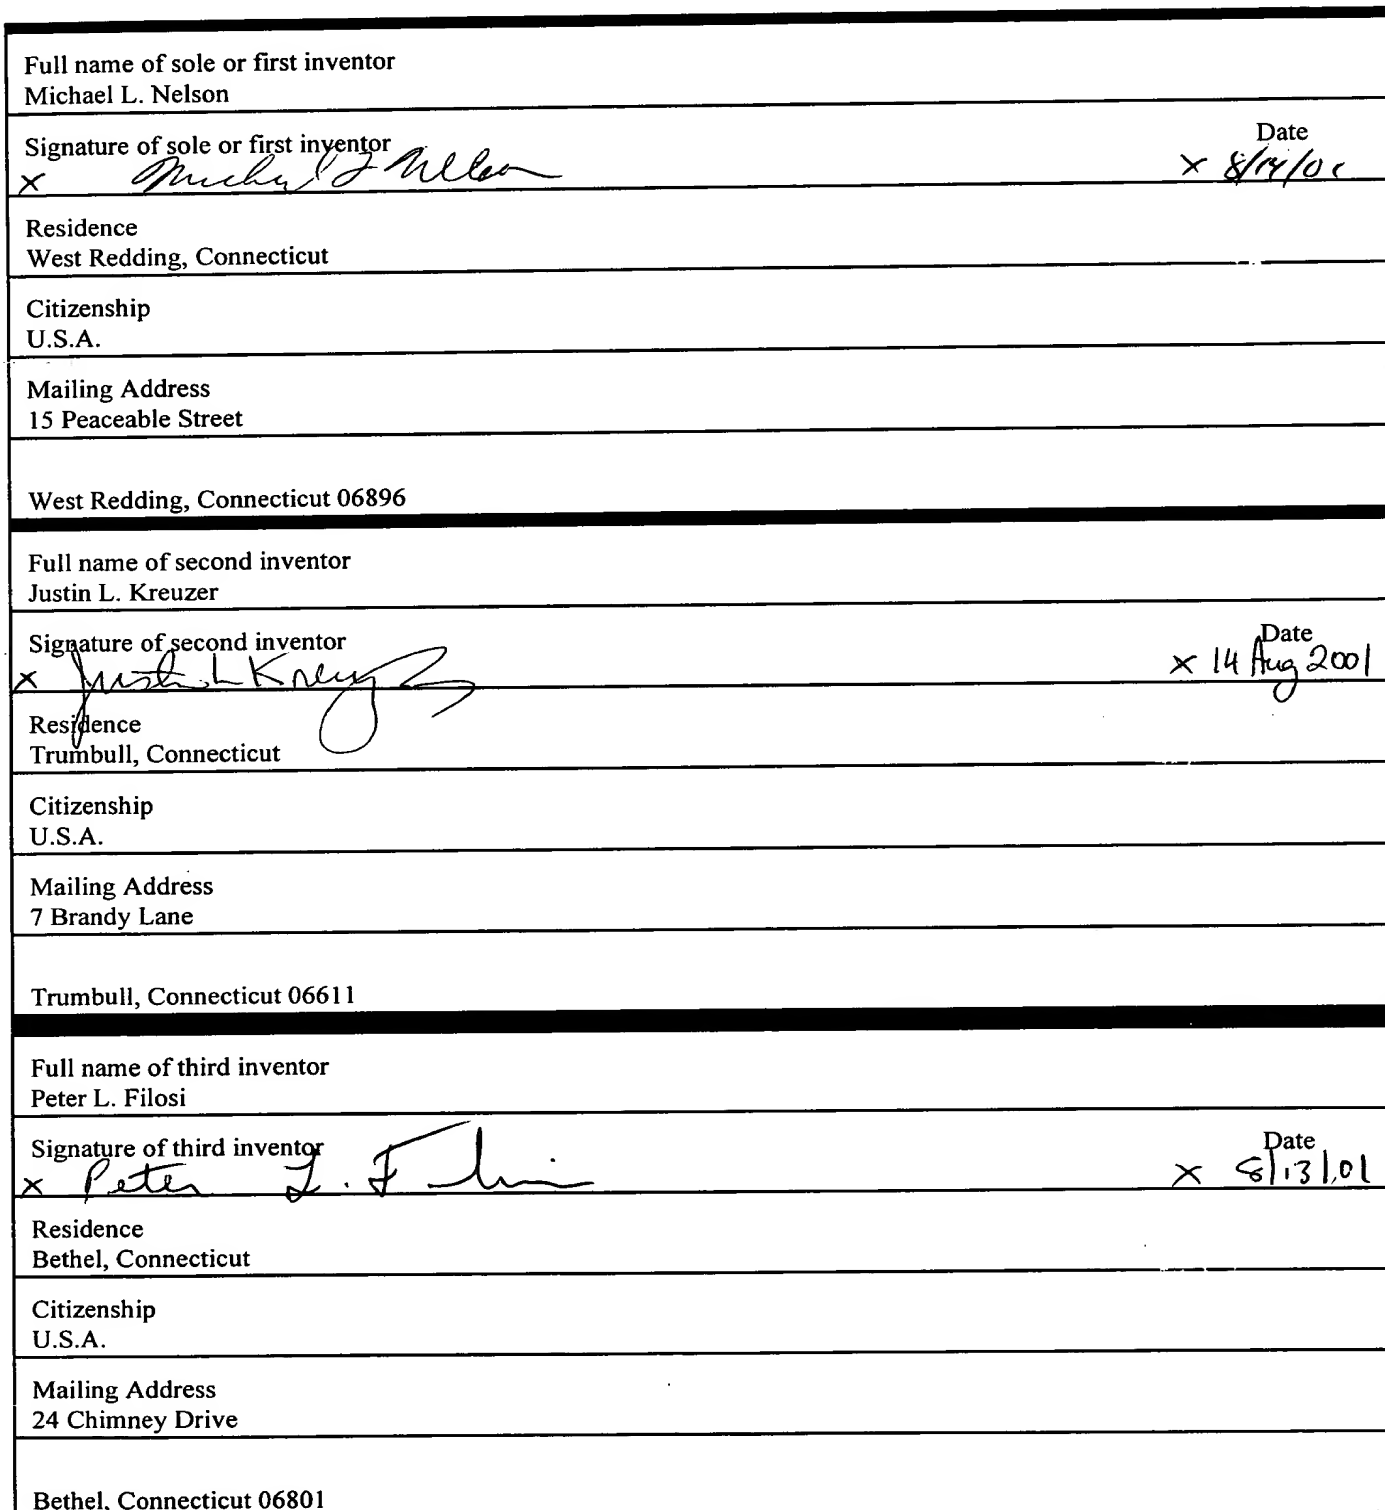 Full name of sole or first inventor
Michael L. Nelson
Signature of sole or first inventor
Date
x Michael L Nelson
x 8/14/01
Residence
West Redding, Connecticut
Citizenship
U.S.A.
Mailing Address
15 Peaceable Street
West Redding, Connecticut 06896
Full name of second inventor
Justin L. Kreuzer
Signature of second inventor
Date
x Justin L Kreuzer
x 14 Aug 2001
Residence
Trumbull, Connecticut
Citizenship
U.S.A.
Mailing Address
7 Brandy Lane
Trumbull, Connecticut 06611
Full name of third inventor
Peter L. Filosi
Signature of third inventor
Date
x Peter L. Filosi
x 8/13/01
Residence
Bethel, Connecticut
Citizenship
U.S.A.
Mailing Address
24 Chimney Drive
Bethel, Connecticut 06801